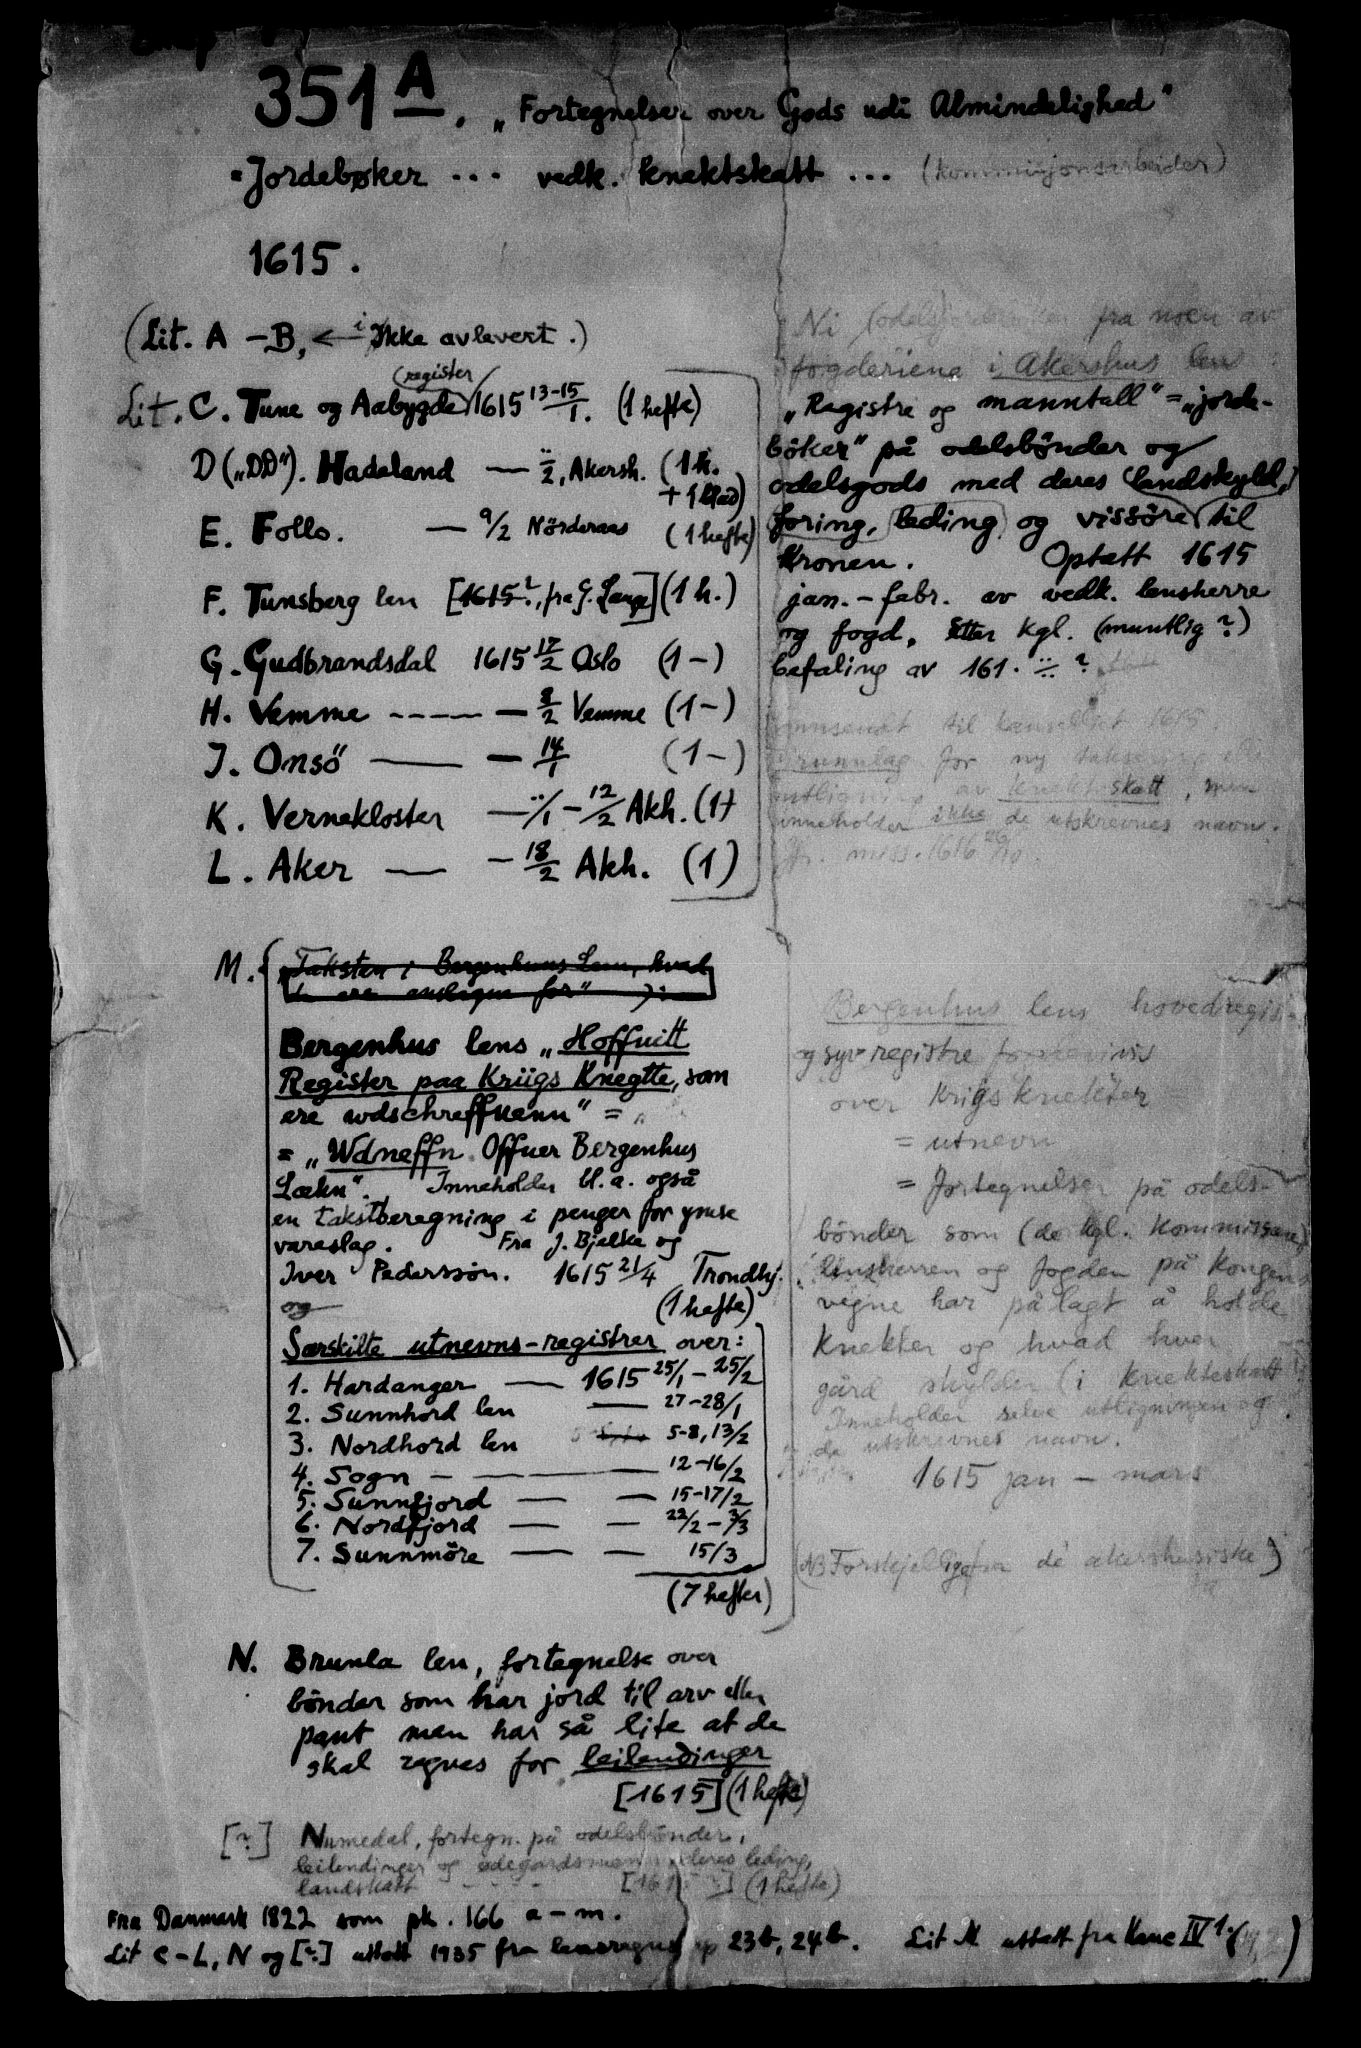 351 A. „Fortegnelser over Gods udi Almindelighed"
= Jordebøker ... vedk. knektskatt ... (kommisjonsarbeider)
1615.
(Lit. A – B, ← ikke avlevert.)
(register)
Lit. C. Tune og Aabygde 1615 13-15/1. (1 hefte)
D („DD"). Hadeland — ../2, Akersh. (1 h.
+ 1 blad)
E. Follo. — 9/2 Nörderaas (1 hefte)
F. Tunsberg len [1615?, fra G. Lange] (1 h.)
G. Gudbrandsdal 1615 17/2 Oslo (1 –)
H. Vemme ---- — 8/2 Vemme (1 –)
J. Onsö — — 14/1 (1 –)
K. Vernekloster — ../1 – 12/2 Akh. (1)
L. Aker — – 18/2 Akh. (1)
Ni (odels) fra noen av
fogderiene i Akershus len
„Registre og manntall" = „jorde-
böker" på odelsbönder og
odelsgods med deres (landskyld,)
foring, leding og vissöre til
Kronen. Optatt 1615
jan. – febr. av vedk. lensherre
og fogd, etter kgl. (muntlig?)
befaling av 161. ?
innsendt til kanselliet 1615.
Grunnlag for ny taksering
utligning av knekteskatt, men
inneholder ikke de utskrevnes navn.
miss. 1616
M. „Taksten i Bergenhus Len, hvad
Bergenhus lens „Hoffuitt
Register paa Kriigs Knegtte, som
ere wdschreffuenn" =
= „Wdneffn Offuer Bergenhus
Læhn". Inneholder bl. a. også
en takstberegning i penger for ymse
vareslag. Fra J. Bjelke og
Iver Pederssön. 1615 21/4 Trondhj.
og (1 hefte)
Særskilte utnevns-registrer over:
1. Hardanger — 1615 25/1 – 25/2
2. Sunnhord len — 27–28/1
3. Nordhord len 5–8, 13/2
4. Sogn — — 12–16/2
5. Sunnfjord — — 15–17/2
6. Nordfjord — — 22/2 – 3/3
7. Sunnmöre — — 15/3
(7 hefter)
Bergenhus lens hovedregis-
og syv registre
over Krigsknekter
= utnevn
= fortegnelser på odels-
bönder som (de kgl. Kommissærer)
lensherren og fogden på Kongens
vegne har pålagt å holde
Knekter og hvad hver
gård skylder (i knekteskatt
Inneholder selve utligningen og
de utskrevnes navn.
1615 jan – mars
(NB Forskjellige fra de akershusiske)
N. Brunla len, fortegnelse over
bönder som har jord til arv eller
pant men har så lite at de
skal regnes for leilendinger
[1615] (1 hefte)
[?] Numedal, fortegn. på odelsbönder,
leilendinger og ödegardsmenn deres leding,
landskatt [161 ] (1 hefte)
Fra Danmark 1822 som pk. 166 a – m.
Lit C – L, N og [?] uttatt 1935 fra lensregnsk 23b, 24b. Lit M uttatt fra Kanc IV 1.